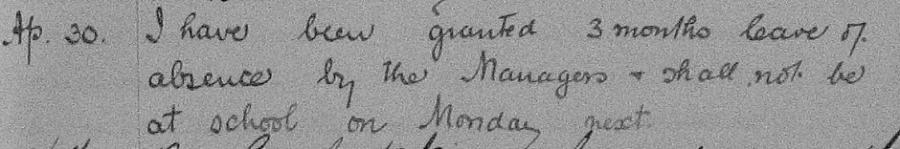 Ap. 30. I have been granted 3 months leave of
absence by the Managers & shall not be
at school on Monday next.